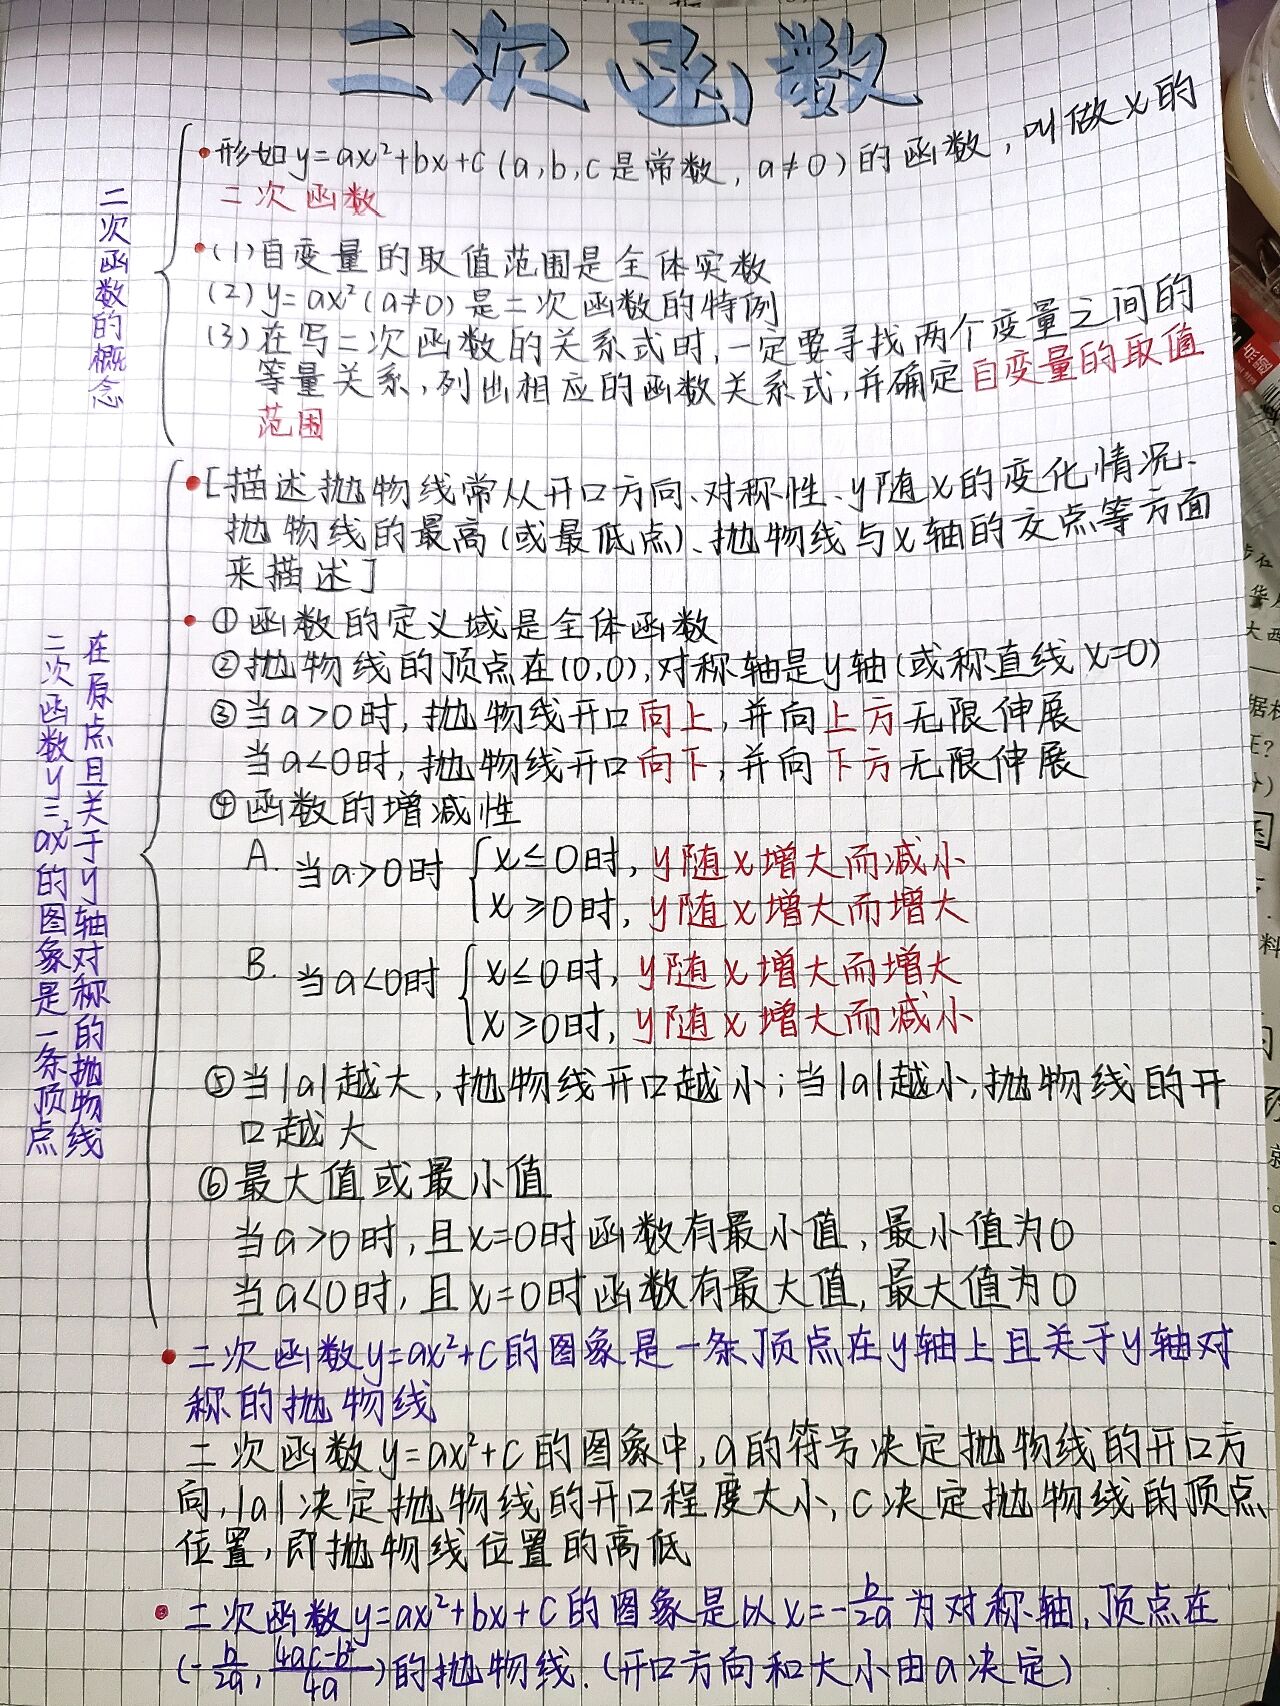 二次函数
二次函数的概念
·形如y=ax²+bx+c(a,b,c是常数,a≠0)的函数,叫做x的
二次函数
·(1)自变量的取值范围是全体实数
(2)y=ax²(a≠0)是二次函数的特例
(3)在写二次函数的关系式时,一定要寻找两个变量之间的
等量关系,列出相应的函数关系式,并确定自变量的取值
范围
二次函数y=ax²的图象是一条顶点
在原点且关于y轴对称的抛物线
·[描述抛物线常从开口方向、对称性、y随x的变化情况、
抛物线的最高(或最低点)、抛物线与x轴的交点等方面
来描述]
·①函数的定义域是全体函数
②抛物线的顶点在(0,0),对称轴是y轴(或称直线x=0)
③当a>0时,抛物线开口向上,并向上方无限伸展
当a<0时,抛物线开口向下,并向下方无限伸展
④函数的增减性
A. 当a>0时 { x≤0时,y随x增大而减小
x≥0时,y随x增大而增大
B. 当a<0时 { x≤0时,y随x增大而增大
x≥0时,y随x增大而减小
⑤当|a|越大,抛物线开口越小;当|a|越小,抛物线的开
口越大
⑥最大值或最小值
当a>0时,且x=0时函数有最小值,最小值为0
当a<0时,且x=0时函数有最大值,最大值为0
·二次函数y=ax²+c的图象是一条顶点在y轴上且关于y轴对
称的抛物线
二次函数y=ax²+c的图象中,a的符号决定抛物线的开口方
向,|a|决定抛物线的开口程度大小,c决定抛物线的顶点
位置,即抛物线位置的高低
·二次函数y=ax²+bx+c的图象是以x=-b/2a为对称轴,顶点在
(-b/2a,4ac-b²/4a)的抛物线.(开口方向和大小由a决定)